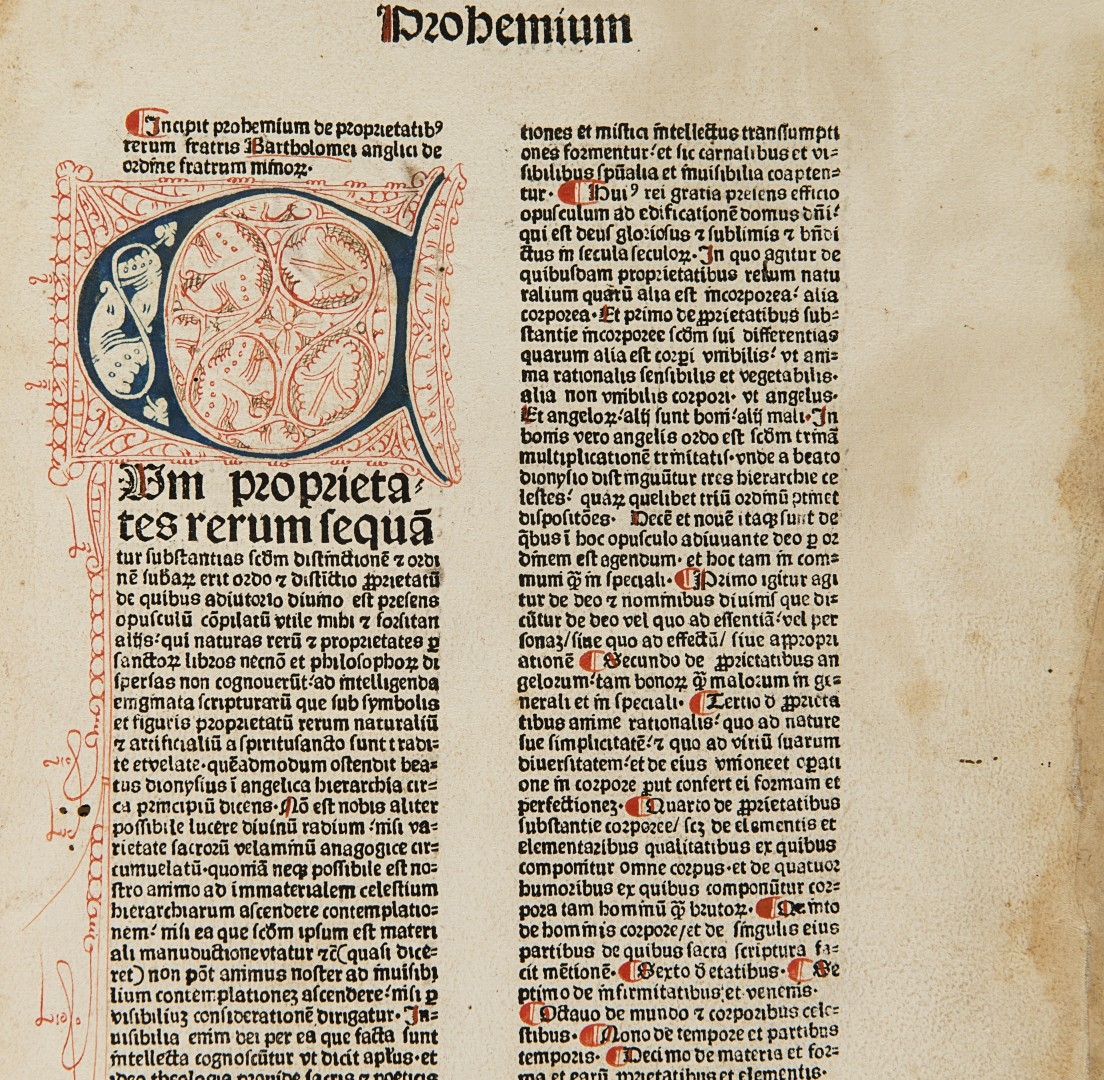 Prohemium
Incipit prohemium de proprietatibꝰ
rerum fratris Bartholomei anglici de
ordine fratrum minoꝝ.
CUm proprieta⸗
tes rerum sequā
tur substantias scḋm distinctionē ⁊ ordi
nē subaꝝ erit ordo ⁊ distīctio ꝓprietatū
de quibus adiutorio diuino est presens
opusculū cōpilatū vtile mihi ⁊ forsitan
alijs· qui naturas rerū ⁊ proprietates ꝑ
sanctoꝝ libros necnō et philosophoꝝ di
spersas non cognouerūt· ad intelligenda
enigmata scripturarū que sub symbolis
et figuris proprietatū rerum naturaliū
⁊ artificialiū a spiritusancto sunt tradi⸗
te et velate· quēadmodum ostendit bea⸗
tus dionysius ī angelica hierarchia cir⸗
ca principiū dicens· Nō est nobis aliter
possibile lucere diuinū radium· nisi va⸗
rietate sacrorū velaminū anagogice cir⸗
cumuelatū· quoniā neqꝫ possibile est no⸗
stro animo ad immaterialem celestium
hierarchiarum ascendere contemplatio⸗
nem· nisi ea que scḋm ipsum est materi
ali manuductione vtatur ⁊c̄ (quasi dice⸗
ret) non pōt animus noster ad inuisibi
lium contemplationeꝫ ascendere· nisi ꝑ
visibiliuꝫ considerationē dirigatur· In⸗
uisibilia enim dei per ea que facta sunt
intellecta cognoscūtur vt dicit apl̄us· et
ideo theologia prouide sacris ⁊ poeticis
tiones et mistici intellectus transsumpti
ones formentur· et sic carnalibus et vi⸗
sibilibus spūalia et inuisibilia coapten⸗
tur· Huiꝰ rei gratia presens efficio
opusculum ad edificationē domus dn̄i·
qui est deus gloriosus ⁊ sublimis ⁊ bn̄di
ctus in secula seculoꝝ· In quo agitur de
quibusdam proprietatibus rerum natu
ralium quarū alia est incorporea· alia
corporea· Et primo de ꝓprietatibus sub⸗
stantie incorporee scḋm sui differentias
quarum alia est corpi vnibilis· vt ani⸗
ma rationalis sensibilis et vegetabilis·
alia non vnibilis corpori· vt angelus·
Et angeloꝝ· alij sunt boni· alij mali· In
bonis vero angelis ordo est scḋm trinā
multiplicationē trinitatis· vnde a beato
dionysio distinguūtur tres hierarchie ce
lestes· quaꝝ quelibet triū ordinū ꝯtinet
dispositōes· Decē et nouē itaqꝫ sunt de
qͥbus ī hoc opusculo adiuuante deo ꝑ or
dinem est agendum· et hoc tam in com⸗
muni qͣ̄ in speciali· Primo igitur agi
tur de deo ⁊ nominibus diuinis que di⸗
cūtur de deo vel quo ad essentiā· vel per
sonaꝫ/ siue quo ad effectū/ siue appropri
ationē Secundo de ꝓprietatibus an
gelorum· tam bonoꝝ qͣ̄ malorum in ge⸗
nerali et in speciali· Tertio ď ꝓprieta
tibus anime rationalis· quo ad nature
sue simplicitatē· ⁊ quo ad viriū suarum
diuersitatem· et de eius vnione et cꝑati
one in corpore ꝓut confert ei formam et
perfectioneꝫ· Quarto de ꝓprietatibus
substantie corporee/ scꝫ de elementis et
elementaribus qualitatibus ex quibus
componitur omne corpus· et de quatuor
humoribus ex quibus componūtur cor⸗
pora tam hominū qͣ̄ brutoꝝ· Quinto
de hominis corpore/ et de singulis eius
partibus de quibus sacra scriptura fa⸗
cit mētionē· Sexto ď etatibus· Se
ptimo de infirmitatibus et venenis·
Octauo de mundo ⁊ corporibus cele⸗
stibus· Nono de tempore et partibus
temporis· Decimo de materia et for⸗
ma et earū ꝓprietatibus et elementis·